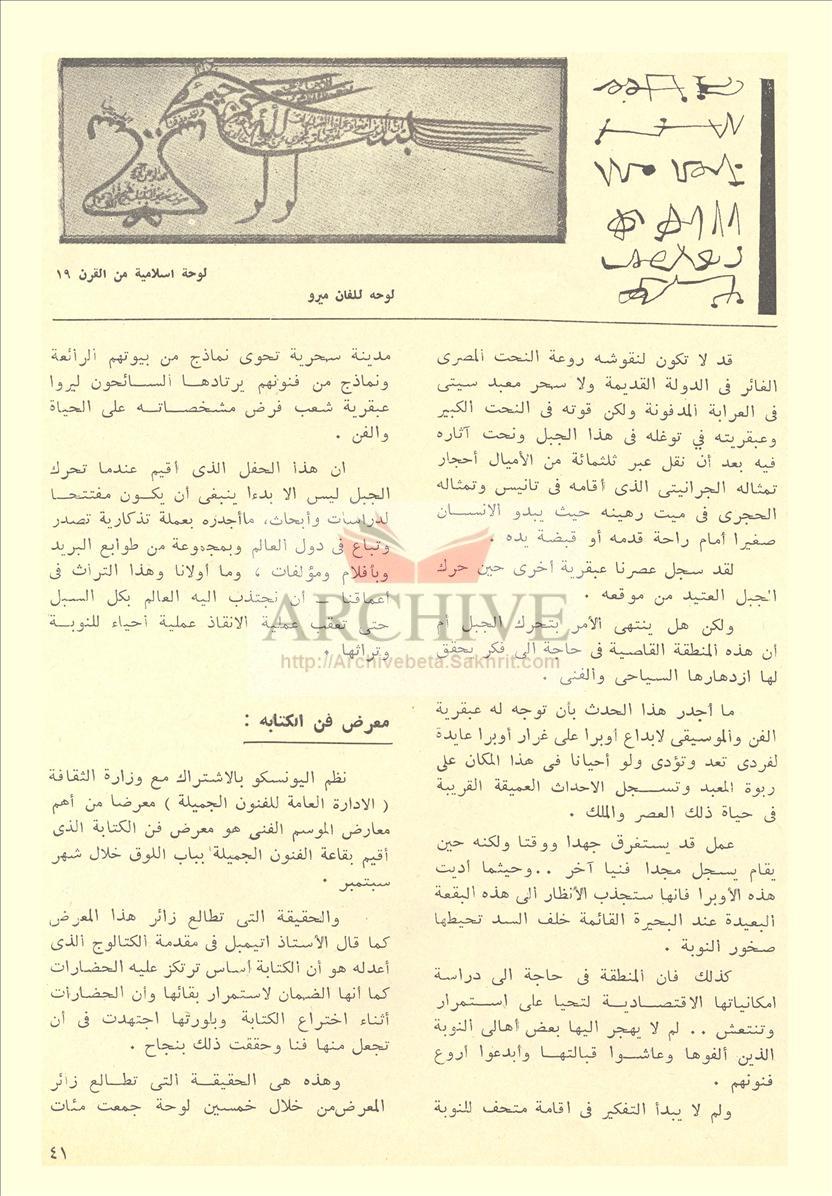 لوحة اسلامية من القرن ١٩
لوحه للفان ميرو
قد لا تكون لنقوشه روعة النحت المصرى
الغائر فى الدولة القديمة ولا سحر معبد سيتى
فى العرابة المدفونة ولكن قوته فى النحت الكبير
وعبقريته في توغله فى هذا الجبل ونحت آثاره
فيه بعد أن نقل عبر ثلثمائة من الأميال أحجار
تمثاله الجرانيتى الذى أقامه فى تانيس وتمثاله
الحجرى فى ميت رهينه حيث يبدو الانسان
صغيرا أمام راحة قدمه أو قبضة يده .
لقد سجل عصرنا عبقرية أخرى حين حرك
الجبل العتيد من موقعه .
ولكن هل ينتهى الأمر بتحرك الجبل أم
أن هذه المنطقة القاصية فى حاجة الى فكر يحقق
لها ازدهارها السياحى والفنى .
ما أجدر هذا الحدث بأن توجه له عبقرية
الفن والموسيقى لابداع أوبرا على غرار أوبرا عايدة
لفردى تعد وتؤدى ولو أحيانا فى هذا المكان على
ربوة المعبد وتسجل الاحداث العميقة القريبة
فى حياة ذلك العصر والملك .
عمل قد يستغرق جهدا ووقتا ولكنه حين
يقام يسجل مجدا فنيا آخر .. وحيثما أديت
هذه الأوبرا فانها ستجذب الأنظار الى هذه البقعة
البعيدة عند البحيرة القائمة خلف السد تحيطها
صخور النوبة .
كذلك فان المنطقة فى حاجة الى دراسة
امكانياتها الاقتصادية لتحيا على استمرار
وتنتعش .. لم لا يهجر اليها بعض أهالى النوبة
الذين ألفوها وعاشوا قبالتها وأبدعوا أروع
فنونهم .
ولم لا يبدأ التفكير فى اقامة متحف للنوبة
مدينة سحرية تحوى نماذج من بيوتهم الرائعة
ونماذج من فنونهم يرتادها السائحون ليروا
عبقرية شعب فرض مشخصاته على الحياة
والفن .
ان هذا الحفل الذى أقيم عندما تحرك
الجبل ليس الا بدءا ينبغى أن يكون مفتتحا
لدراسات وأبحاث، ماأجدره بعملة تذكارية تصدر
وتباع فى دول العالم وبمجموعة من طوابع البريد
وبأفلام ومؤلفات ، وما أولانا وهذا التراث فى
أعماقنا – أن نجتذب اليه العالم بكل السبل
حتى تعقب عملية الانقاذ عملية أحياء للنوبة
وتراثها .
ARCHIVE
http://Archivebeta.Sakhrit.com
معرض فن الكتابه :
نظم اليونسكو بالاشتراك مع وزارة الثقافة
( الادارة العامة للفنون الجميلة ) معرضا من أهم
معارض الموسم الفنى هو معرض فن الكتابة الذى
أقيم بقاعة الفنون الجميلة بباب اللوق خلال شهر
سبتمبر .
والحقيقة التى تطالع زائر هذا المعرض
كما قال الأستاذ اتيمبل فى مقدمة الكتالوج الذى
أعدله هو أن الكتابة أساس ترتكز عليه الحضارات
كما أنها الضمان لاستمرار بقائها وأن الحضارات
أثناء اختراع الكتابة وبلورتها اجتهدت فى أن
تجعل منها فنا وحققت ذلك بنجاح .
وهذه هى الحقيقة التى تطالع زائر
المعرض من خلال خمسين لوحة جمعت مئات
٤١